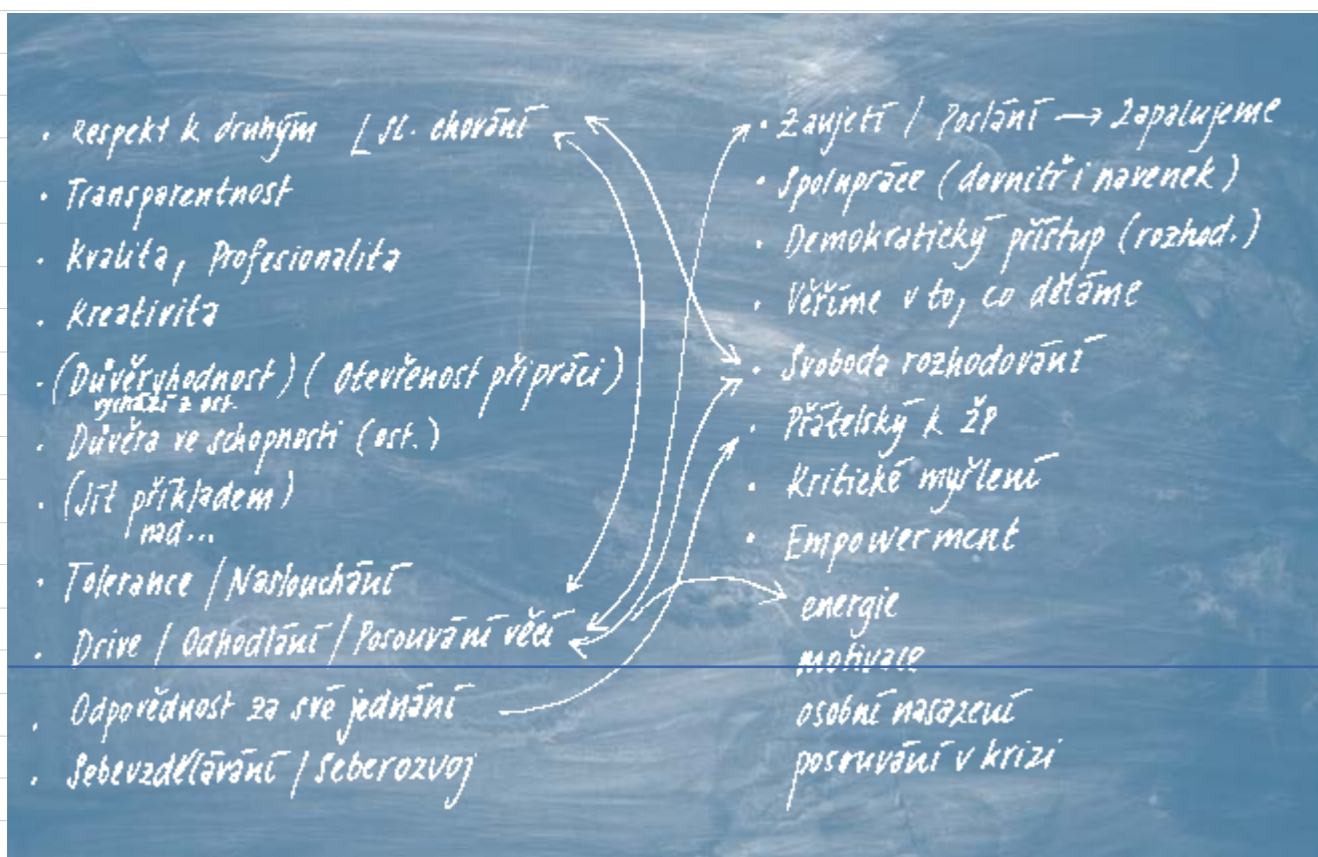 • Respekt k druhým / sl. chování
• Transparentnost
• Kvalita, Profesionalita
• Kreativita
• (Důvěryhodnost) (Otevřenost při práci)
vychází z ost.
• Důvěra ve schopnosti (ost.)
• (Jít příkladem)
nad...
• Tolerance / Naslouchání
• Drive / Odhodlání / Posouvání věcí
• Odpovědnost za své jednání
• Sebevzdělávání / Seberozvoj
• Zaujetí / Poslání → Zapalujeme
• Spolupráce (dovnitř i navenek)
• Demokratický přístup (rozhod.)
• Věříme v to, co děláme
• Svoboda rozhodování
• Přátelský k ŽP
• Kritické myšlení
• Empowerment
energie
motivace
osobní nasazení
posouvání v krizi